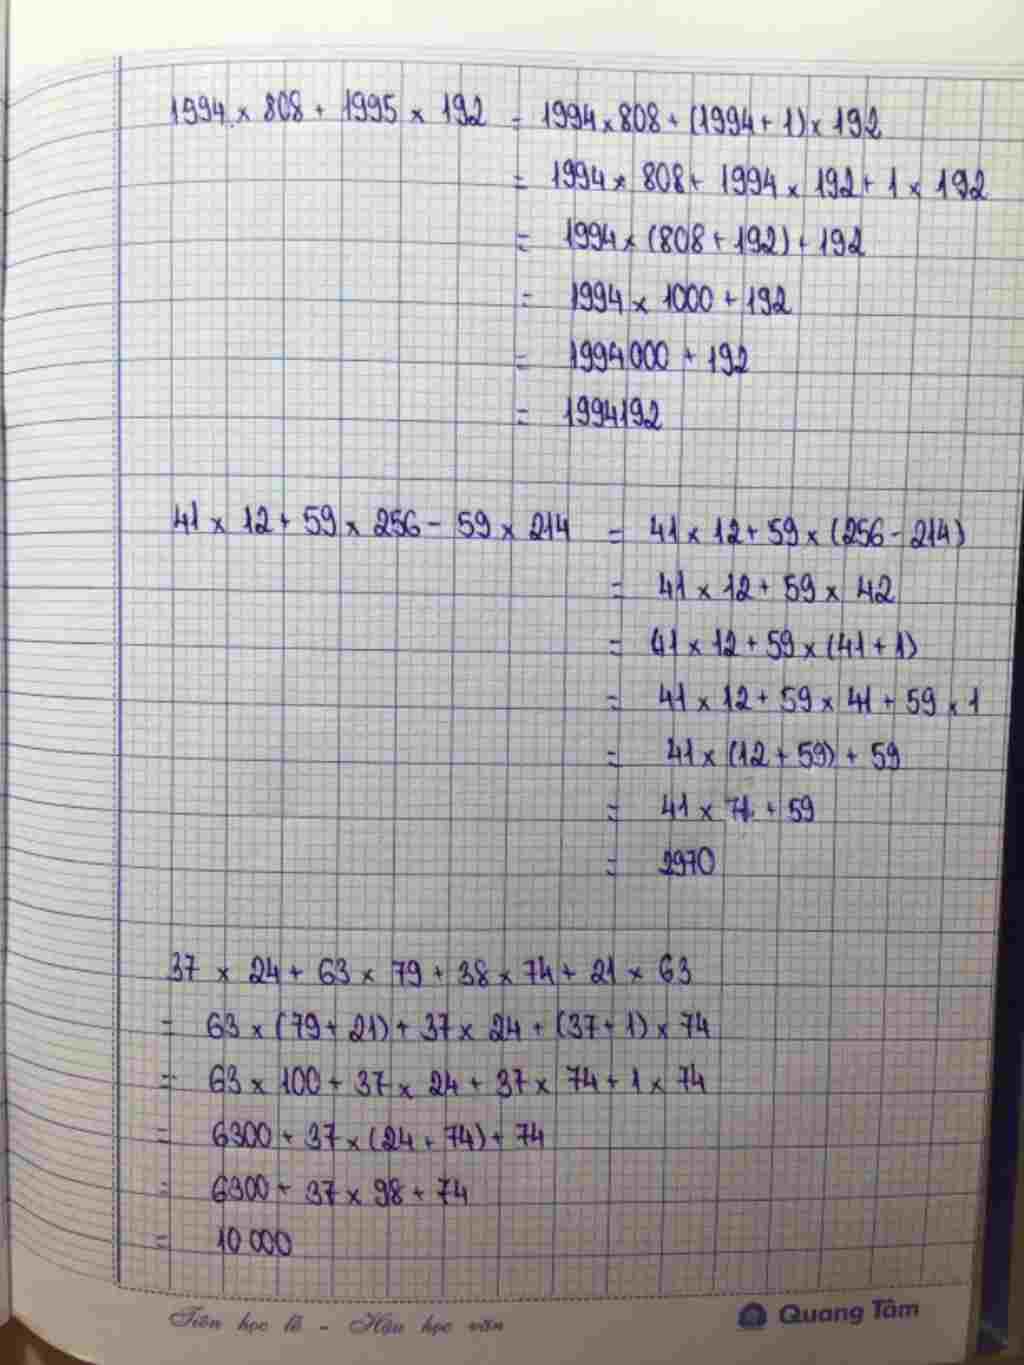 1994 × 808 + 1995 × 192 = 1994 × 808 + (1994 + 1) × 192
= 1994 × 808 + 1994 × 192 + 1 × 192
= 1994 × (808 + 192) + 192
= 1994 × 1000 + 192
= 1994000 + 192
= 1994192
41 × 12 + 59 × 256 - 59 × 214 = 41 × 12 + 59 × (256 - 214)
= 41 × 12 + 59 × 42
= 41 × 12 + 59 × (41 + 1)
= 41 × 12 + 59 × 41 + 59 × 1
= 41 × (12 + 59) + 59
= 41 × 71 + 59
= 2970
37 × 24 + 63 × 79 + 38 × 74 + 21 × 63
= 63 × (79 + 21) + 37 × 24 + (37 + 1) × 74
= 63 × 100 + 37 × 24 + 37 × 74 + 1 × 74
= 6300 + 37 × (24 + 74) + 74
= 6300 + 37 × 98 + 74
= 10 000
Tiên học lễ - Hậu học văn
Quang Tâm